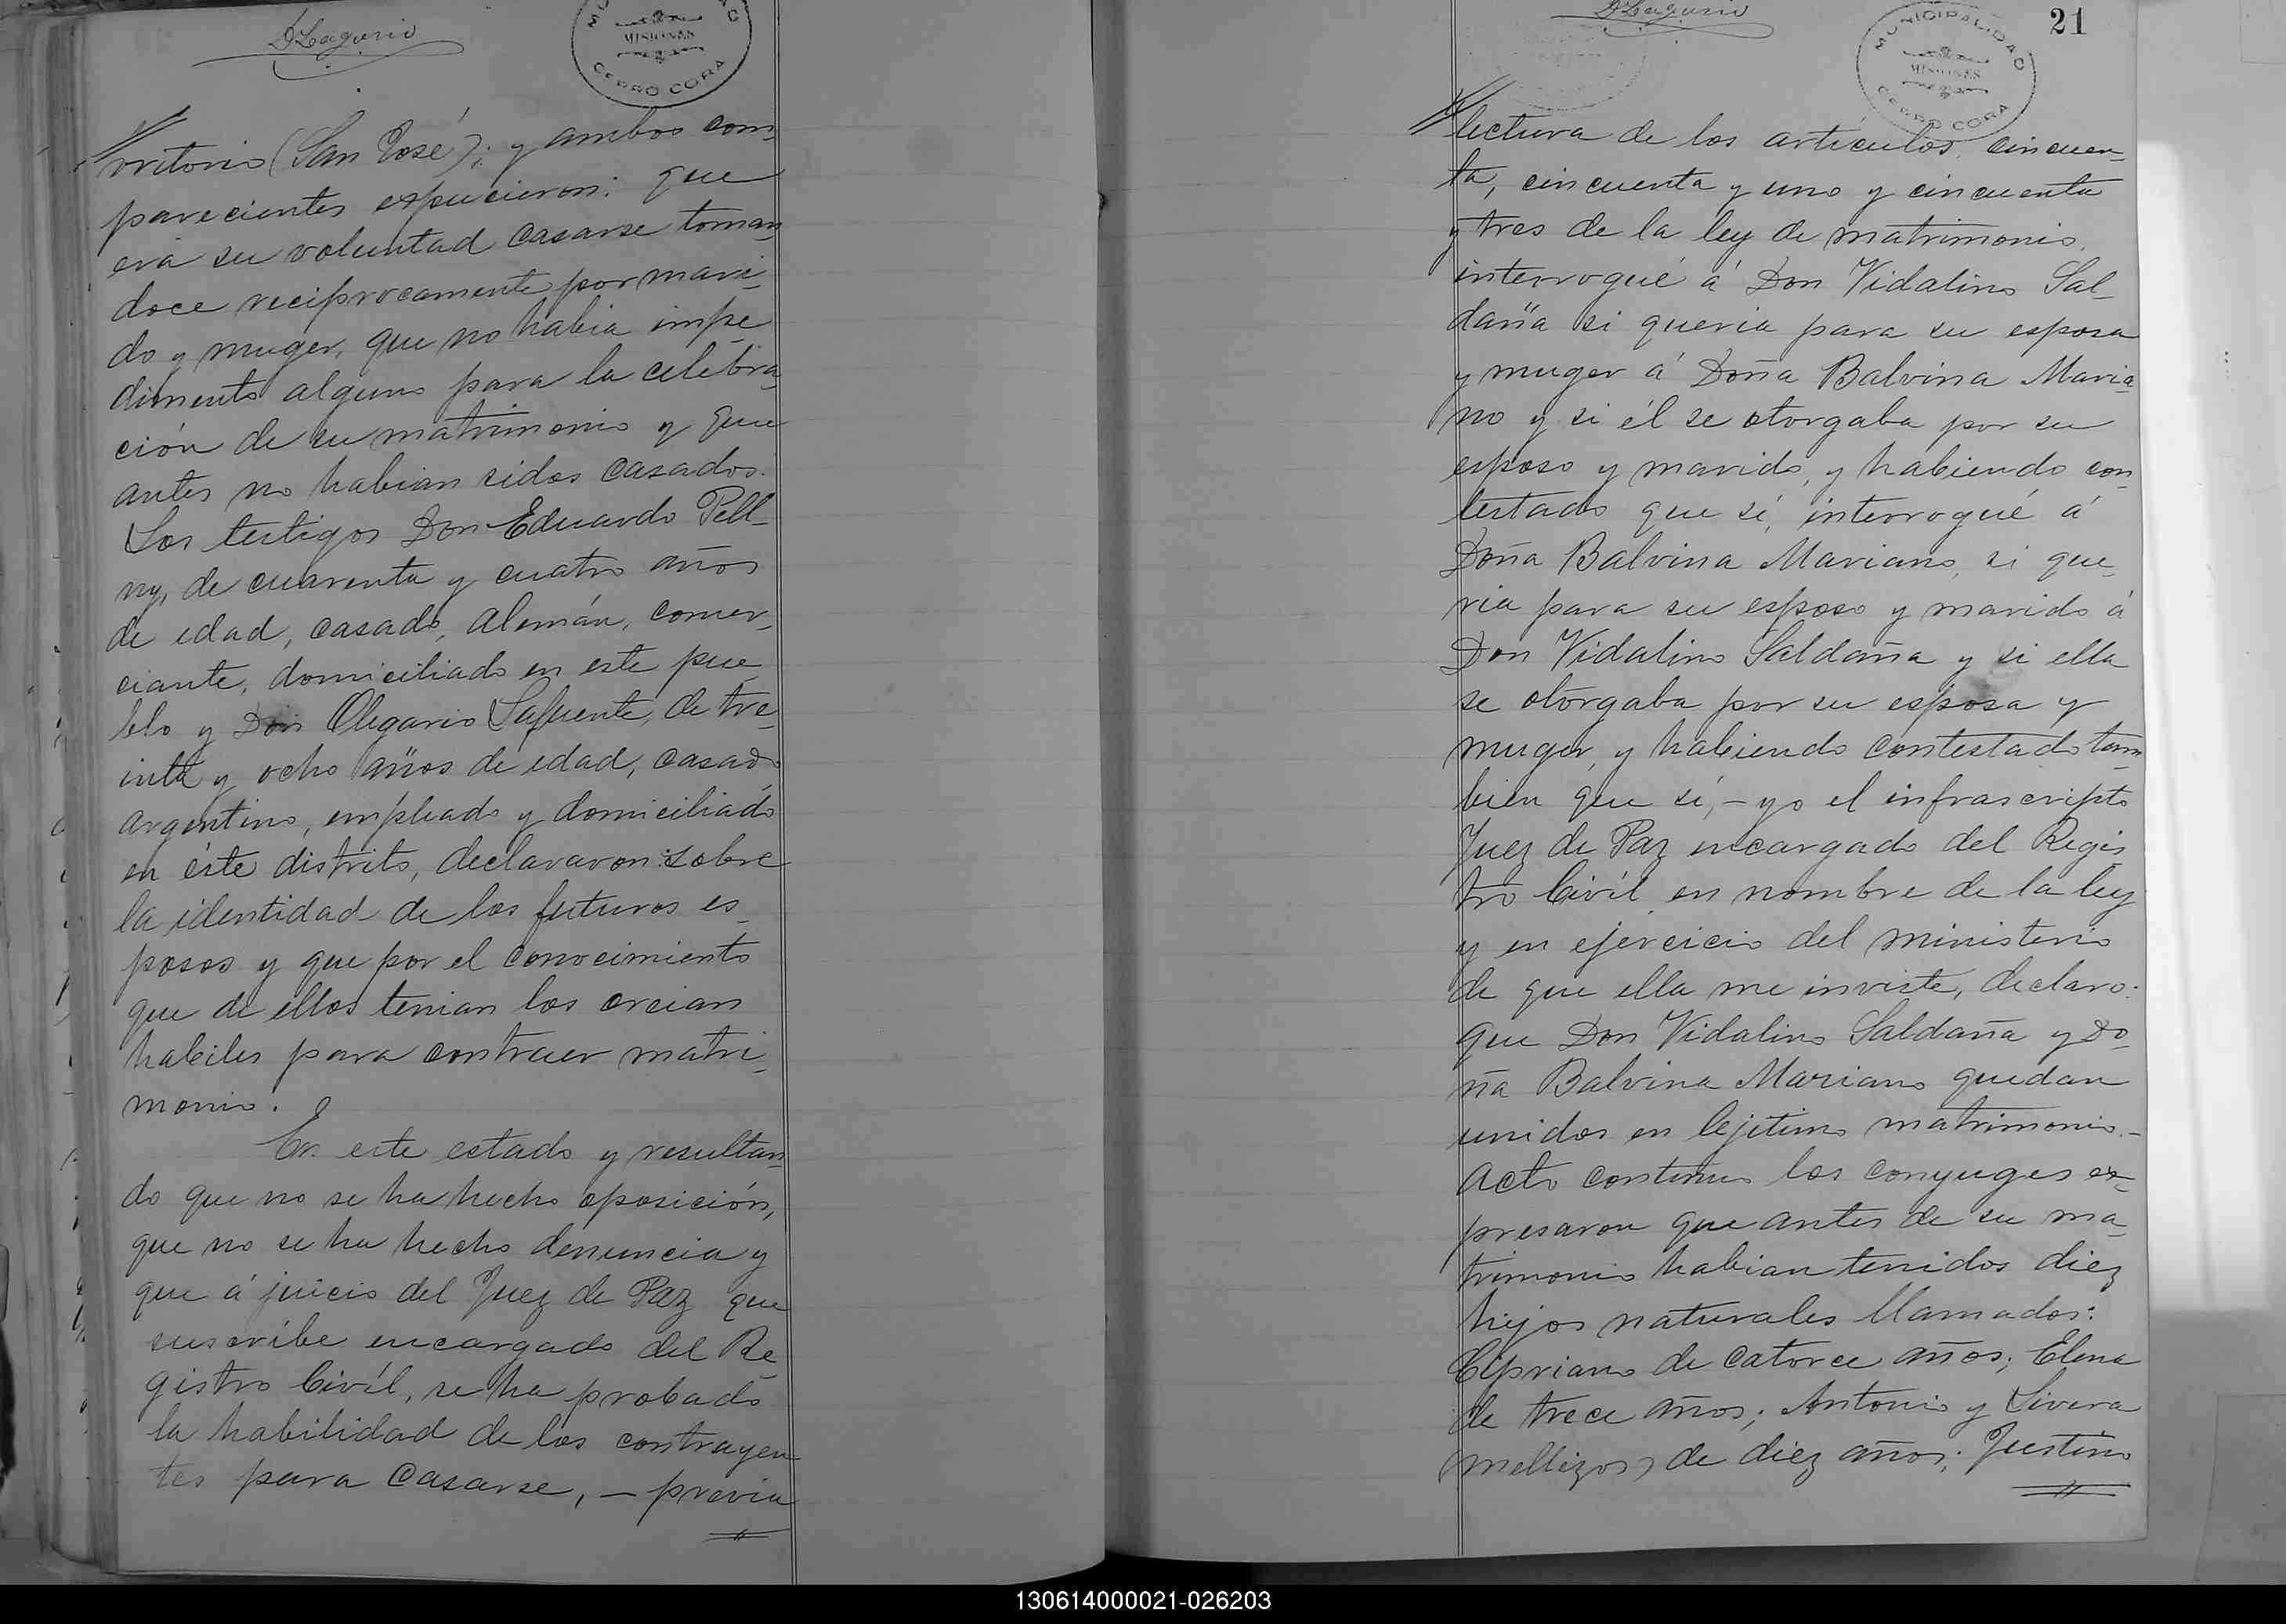 MUNICIPALIDAD
MISIONES
CERRO CORA
rritorio (San José); y ambos com-
parecientes espucieron: que
era su voluntad casarse toman-
doce reciprocamente por mari-
do y muger, que no habia impe-
dimento alguno para la celebra-
ción de su matrimonio y que
antes no habian sidos casados.
Los testigos Don Eduardo Pell-
ny, de cuarenta y cuatro años
de edad, casado, Alemán, comer-
ciante, domiciliado en este pue-
blo y Don Olegario Lafuente, de tre-
inta y ocho años de edad, casado
argentino, empleado y domiciliado
en éste distrito, declararon: sobre
la identidad de los futuros es-
posos y que por el conocimiento
que de ellos tenian los creian
habiles para contraer matri-
monio.
En este estado y resultan-
do que no se ha hecho oposición,
que no se ha hecho denuncia y
que á juicio del Juez de Paz que
suscribe encargado del Re-
gistro Civíl, se ha probado
la habilidad de los contrayen-
tes para casarse, — previa
21
MUNICIPALIDAD
MISIONES
CERRO CORA
lectura de los artículos cincuen-
ta, cincuenta y uno y cincuenta
y tres de la ley de matrimonio.
interrogué á Don Vidalino Sal-
daña si queria para su esposa
y muger á Doña Balvina Maria-
no y si él se otorgaba por su
esposo y marido, y habiendo con-
testado que sí, interrogué á
Doña Balvina Mariano, si que-
ria para su esposo y marido á
Don Vidalino Saldaña y si ella
se otorgaba por su esposa y
muger, y habiendo contestado tam-
bien que sí, – yo el infrascripto
Juez de Paz encargado del Regis-
tro Civíl en nombre de la ley
y en ejercicio del ministerio
de que ella me inviste, declaro:
que Don Vidalino Saldaña y Do-
ña Balvina Mariano quedan
unidos en lejitimo matrimonio.-
Acto continuo los conyuges ex-
presaron que antes de su ma-
trimonio habian tenidos diez
hijos naturales llamados:
Cipriano de catorce años; Elena
de trece años; Antonio y Livera
(mellizos) de diez años; Justino
130614000021-026203